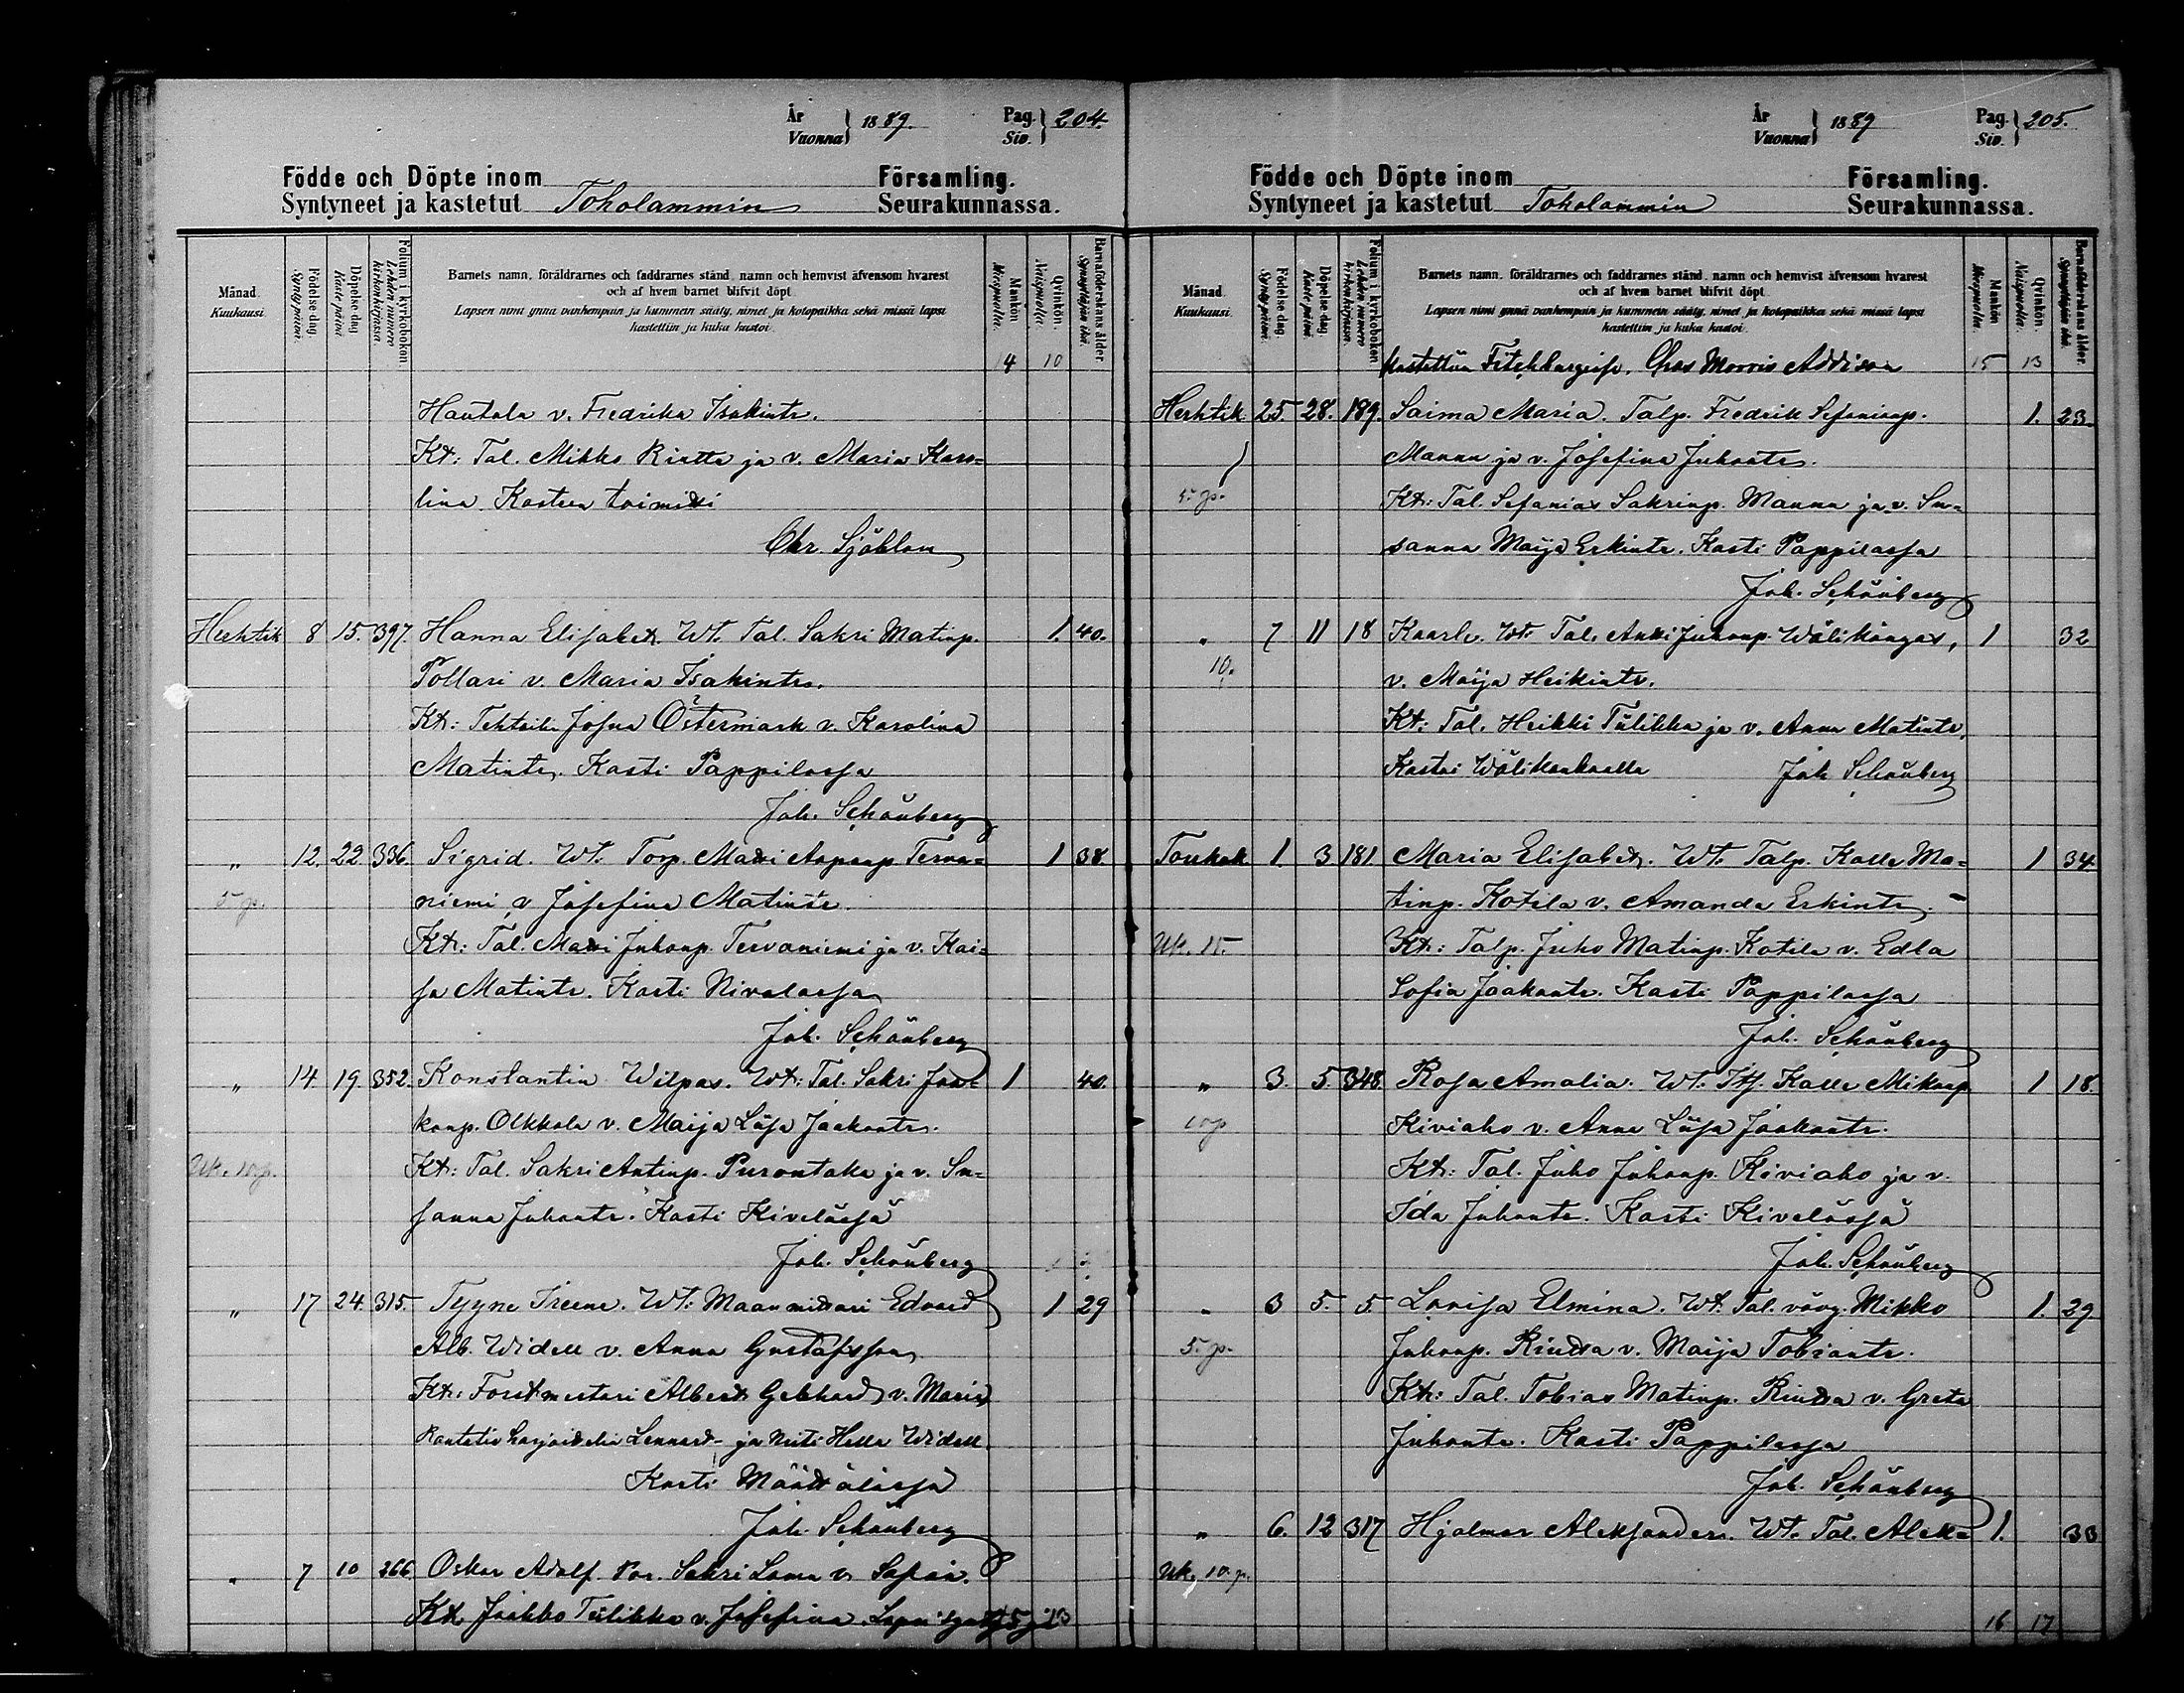 År
Vuonna } 1889.
Pag.
Siv. } 204.
Födde och Döpte inom Församling.
Syntyneet ja kastetut Toholammin Seurakunnassa.
Månad.
Kuukausi.
Födelse-dag.
Syntymäpäivä.
Döpelse-dag.
Kaste päivä.
Folium i kyrkoboken.
Lehden numero kirkonkirjassa.
Barnets namn, föräldrarnes och faddrarnes stånd, namn och hemvist äfvensom hvarest
och af hvem barnet blifvit döpt.
Lapsen nimi ynnä vanhempain ja kummein sääty, nimet ja kotopaikka sekä missä lapsi
kastettiin ja kuka kastoi.
Mankön
Miespuolia.
Qvinkön.
Naispuolia.
Barnaföderskans ålder.
Synnyttäjän ikä.
4 10
Hautala v. Fredrika Isakintr.
Kt: Tal. Mikko Riutta ja v. Maria Karo-
lina. Kasteen toimitti
Chr. Sjöblom
Huhtik 8 15. 397. Hanna Elisabet. Wt. Tal. Sakri Matinp. 1. 40.
Pollari v. Maria Isakintr.
Kt: Josua Östermark v. Karolina
Matintr. Kasti Pappilassa
Joh. Schönberg
" 12. 22. 336. Sigrid. Wt. Torp. Matti Aaponp. Terva- 1 38.
5 p. niemi v Josefina Matintr.
Kt: Tal. Matti Juhonp. Tervaniemi ja v. Kai-
sa Matintr. Kasti Nivalassa
Joh. Schönberg
" 14. 19. 352. Konstantin Wilpas. Wt: Tal. Sakri Jaa- 1 40.
konp. Olkkola v. Maija Liisa Jaakontr.
Uk. 10 p. Kt: Tal. Sakri Antinp. Purontaka ja v. Su-
sanna Juhontr. Kasti Kivelässä
Joh. Schönberg
" 17 24. 315. Tyyne Ireene. Wt: Maanmittari Edvard 1 29
Alb. Widell v. Anna Gustafsson
Kt: Forstmestari Albert Gebhard v. Maria
Lennart ja Neiti Hella Widell.
Kasti Määttälässä
Joh. Schönberg
" 7 10 266. Oskar Adolf. Sakri Lama v. Safiia.
Kt. Jaakko Tiilikka v. Josefina. 15 13
År
Vuonna } 1889
Pag.
Siv. } 205.
Födde och Döpte inom Församling.
Syntyneet ja kastetut Toholammin Seurakunnassa.
Månad.
Kuukausi.
Födelse-dag.
Syntymäpäivä.
Döpelse-dag.
Kaste päivä.
Folium i kyrkoboken.
Lehden numero kirkonkirjassa.
Barnets namn, föräldrarnes och faddrarnes stånd, namn och hemvist äfvensom hvarest
och af hvem barnet blifvit döpt.
Lapsen nimi ynnä vanhempain ja kummein sääty, nimet ja kotopaikka sekä missä lapsi
kastettiin ja kuka kastoi.
Mankön
Miespuolia.
Qvinkön.
Naispuolia.
Barnaföderskans ålder.
Synnyttäjän ikä.
Kastettiin Fitchburgissa. Chas Morris Addison 15 13
Huhtik. 25. 28. 189. Saima Maria. Talp. Fredrik Sefaniasp. 1. 23.
Mannu ja v. Josefina Juhontr.
5. p. Kt: Tal. Sefanias Sakrinp. Mannu ja v. Su-
sanna Maija Erkintr. Kasti Pappilassa
Joh. Schönberg
" 7 11 18 Kaarlo. Wt. Tal. Antti Juhonp. Wälikangas, 1 32
10. v. Maija Heikintr.
Kt: Tal. Heikki Tiilikka ja v. Anna Matintr.
Kastoi Wälikankaalla Joh Schönberg
Toukok. 1. 3 181. Maria Elisabet. Wt. Talp. Kalle Ma- 1 34.
tinp. Kotila v. Amanda Erkintr.
Uk. 15. Kt: Talp. Juho Matinp. Kotila v. Edla
Sofia Jaakontr. Kasti Pappilassa
Joh. Schönberg
" 3. 5. 348. Rosa Amalia. Wt: Itf. Kalle Mikonp 1 18.
10 p Kiviaho v. Anna Liisa Jaakontr.
Kt: Tal. Juho Juhonp. Kiviaho ja v.
Ida Juhontr. Kasti Kivelässä
Joh. Schönberg
" 3 5. 5. Lovisa Elmina. Wt. Tal. vävy. Mikko 1. 29
5. p. Juhonp. Rintta v. Maija Tobiantr.
Kt: Tal. Tobias Matinp. Rintta v. Greta
Juhontr. Kasti Pappilassa
Joh. Schönberg
" 6. 12 317 Hjalmar Aleksander. Wt. Tal. Aleks 1. 33
Uk. 10. p.
16 17